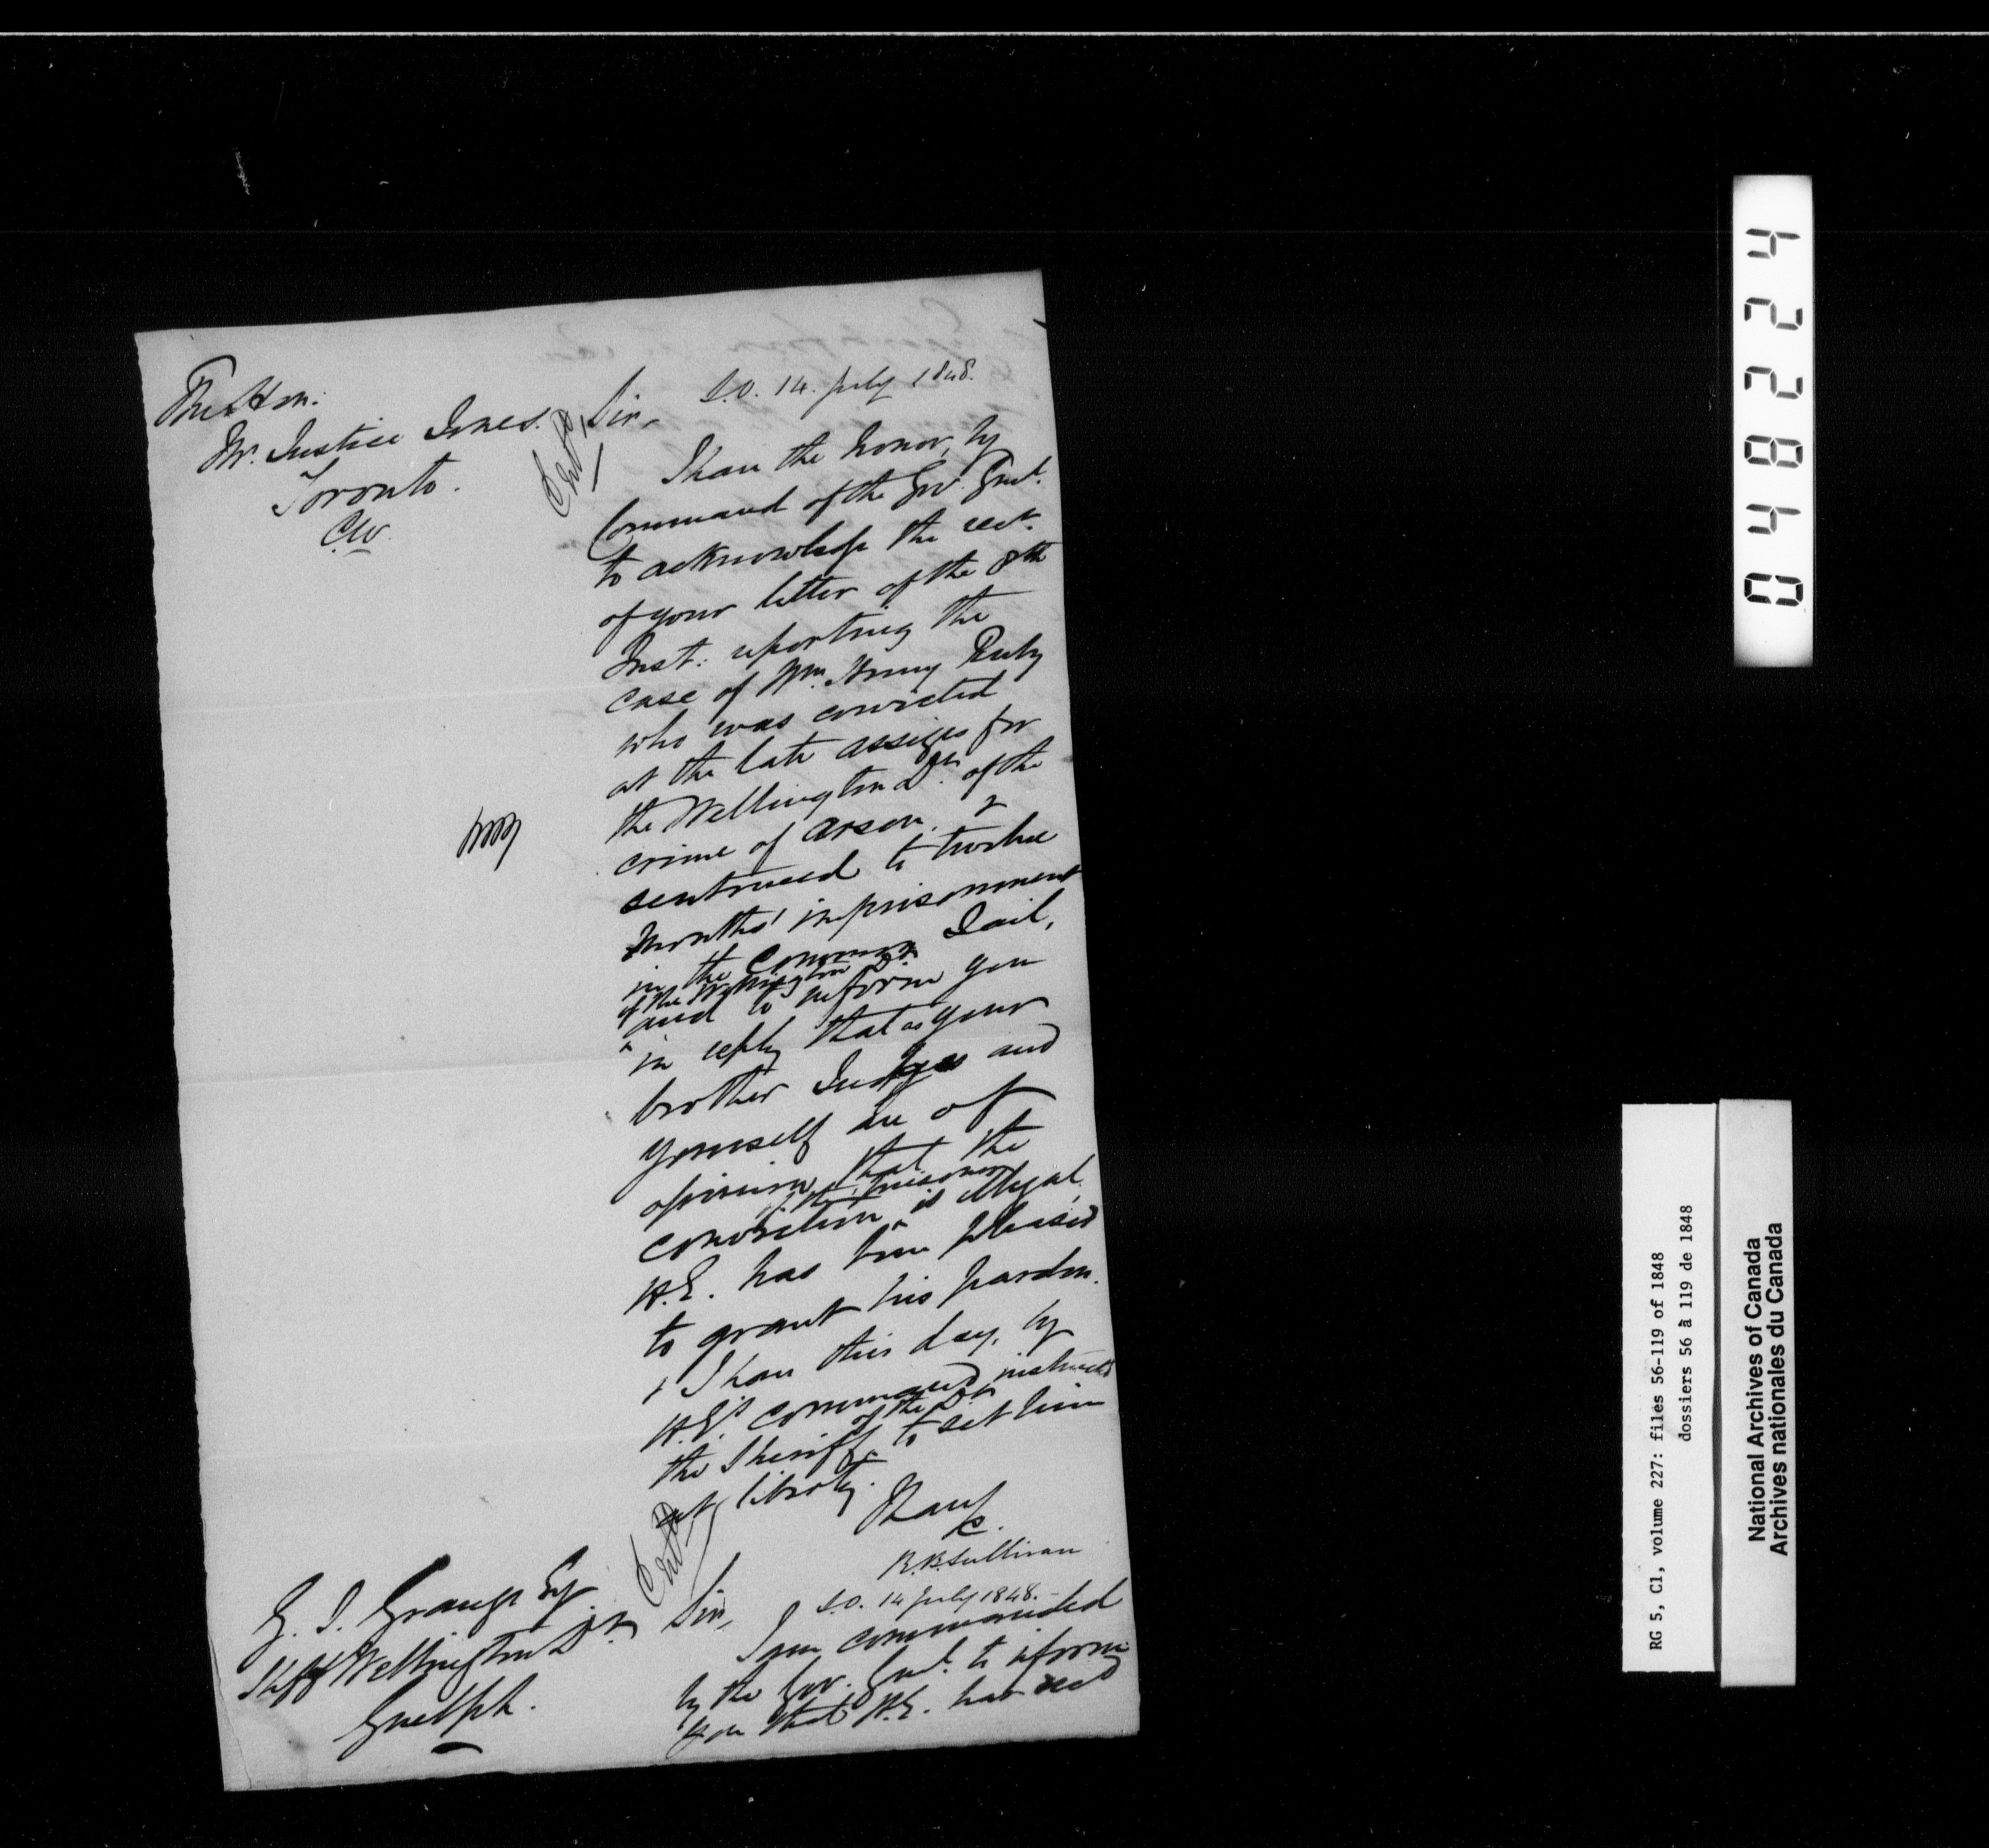 The Hon:
Mr. Justice Jones.
Toronto.
C.W.
S.O. 14. July 1848.
Sir,
I have the honor, by
Command of the Gov. Genl.
to acknowledge the rect.
of your letter of the 8th
Inst: reporting the
case of Wm. Henry
who was convicted
at the late assizes for
the Wellington Dn. of the
crime of arson, &
sentenced to twelve
months' imprisonment
in the Common Jail,
of the Wellington Dt.
and to inform you
in reply that as your
brother Judges and
yourself are of
opinion that the
of the prisoner
conviction is illegal
H.E. has been pleased
to grant his pardon.
& I have this day, by
H.E's command instructed
of the Dt.
the Sheriff to set him
at liberty.
I have
&c.
R.B. Sullivan
G. J. Grange Esq
Shff Wellington Dn.
Guelph.
S.O. 14 July 1848.
Sir,
I am commanded
by the Gov. Genl. to inform
you that H.E. has recd
04824
0482 24
RG 5, C1, volume 227: files 56-119 of 1848
dossiers 56 à 119 de 1848
National Archives of Canada
Archives nationales du Canada